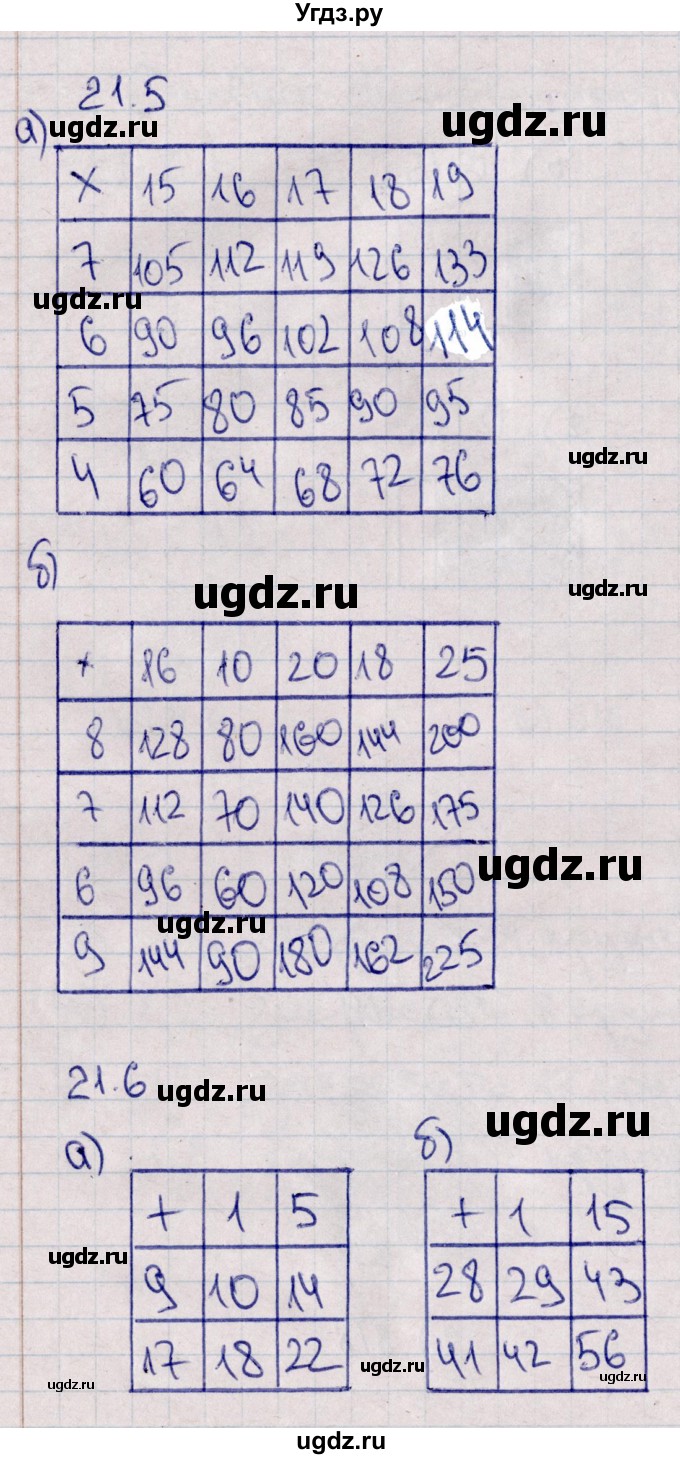 Угдз.ру
21.5
а)
ugdz.ru
ugdz.ru
× 15 16 17 18 19
7 105 112 119 126 133
ugdz.ru
6 90 96 102 108 114
5 75 80 85 90 95
ugdz.ru
4 60 64 68 72 76
б)
ugdz.ru
ugdz.ru
× 16 10 20 18 25
8 128 80 160 144 200
7 112 70 140 126 175
ugdz.ru
6 96 60 120 108 150
ugdz.ru
9 144 90 180 162 225
21.6
ugdz.ru
ugdz.ru
а) б)
+ 1 5
9 10 14
17 18 22
+ 1 15
28 29 43
41 42 56
ugdz.ru
ugdz.ru
ugdz.ru
ugdz.ru
ugdz.ru